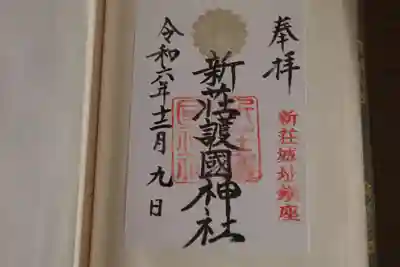 奉拝
新荘城址鎮座
新荘護國神社
令和六年十二月九日